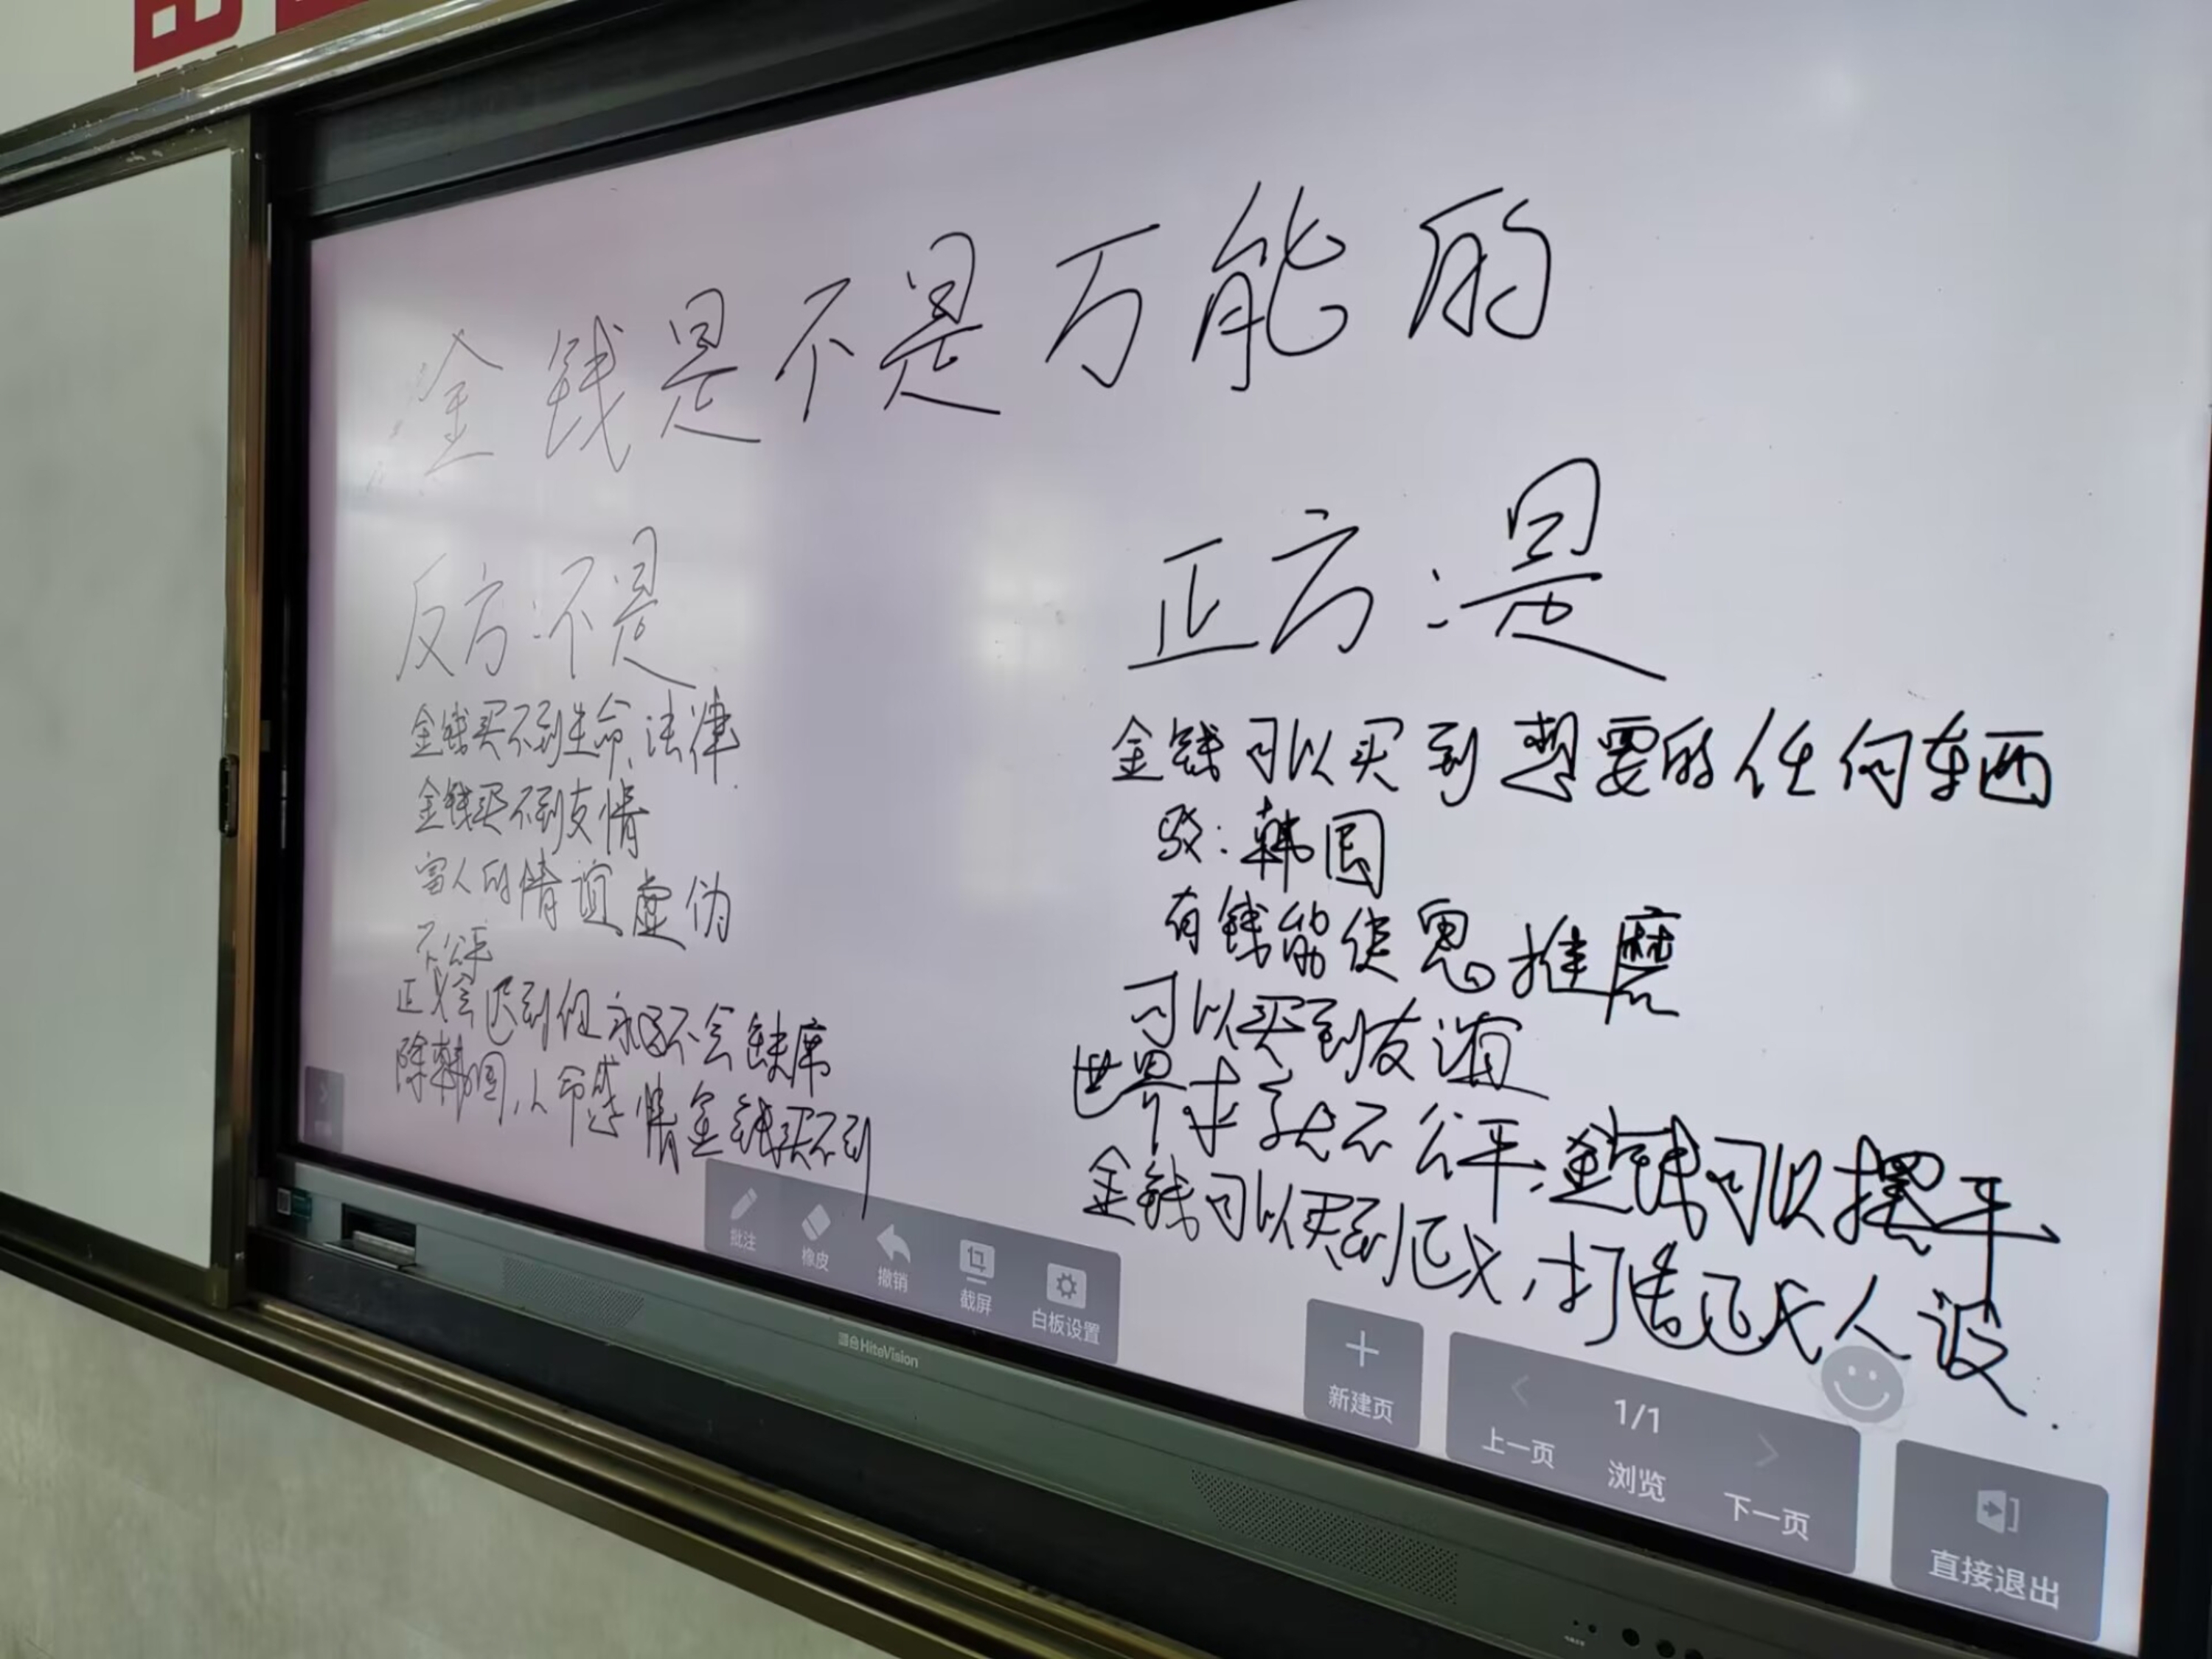 金钱是不是万能的
反方:不是
金钱买不到生命、法律.
金钱买不到友情
富人的情谊虚伪
不公平
正义会迟到但永远不会缺席
除韩国,人命感情金钱买不到
正方:是
金钱可以买到想要的任何东西
驳:韩国
有钱能使鬼推磨
可以买到友谊
世界本就不公平,金钱可以摆平
金钱可以买到正义,打造正义人设.
批注
橡皮
撤销
截屏
白板设置
HiteVision
新建页
1/1
上一页
浏览
下一页
直接退出